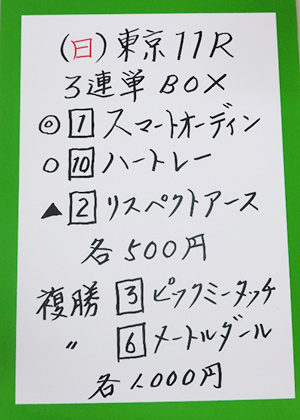 (日)東京11R
3連単BOX
◎1スマートオーディン
○10ハートレー
▲2リスペクトアース
各500円
複勝3ピックミータッチ
〃6メートルダール
各1,000円